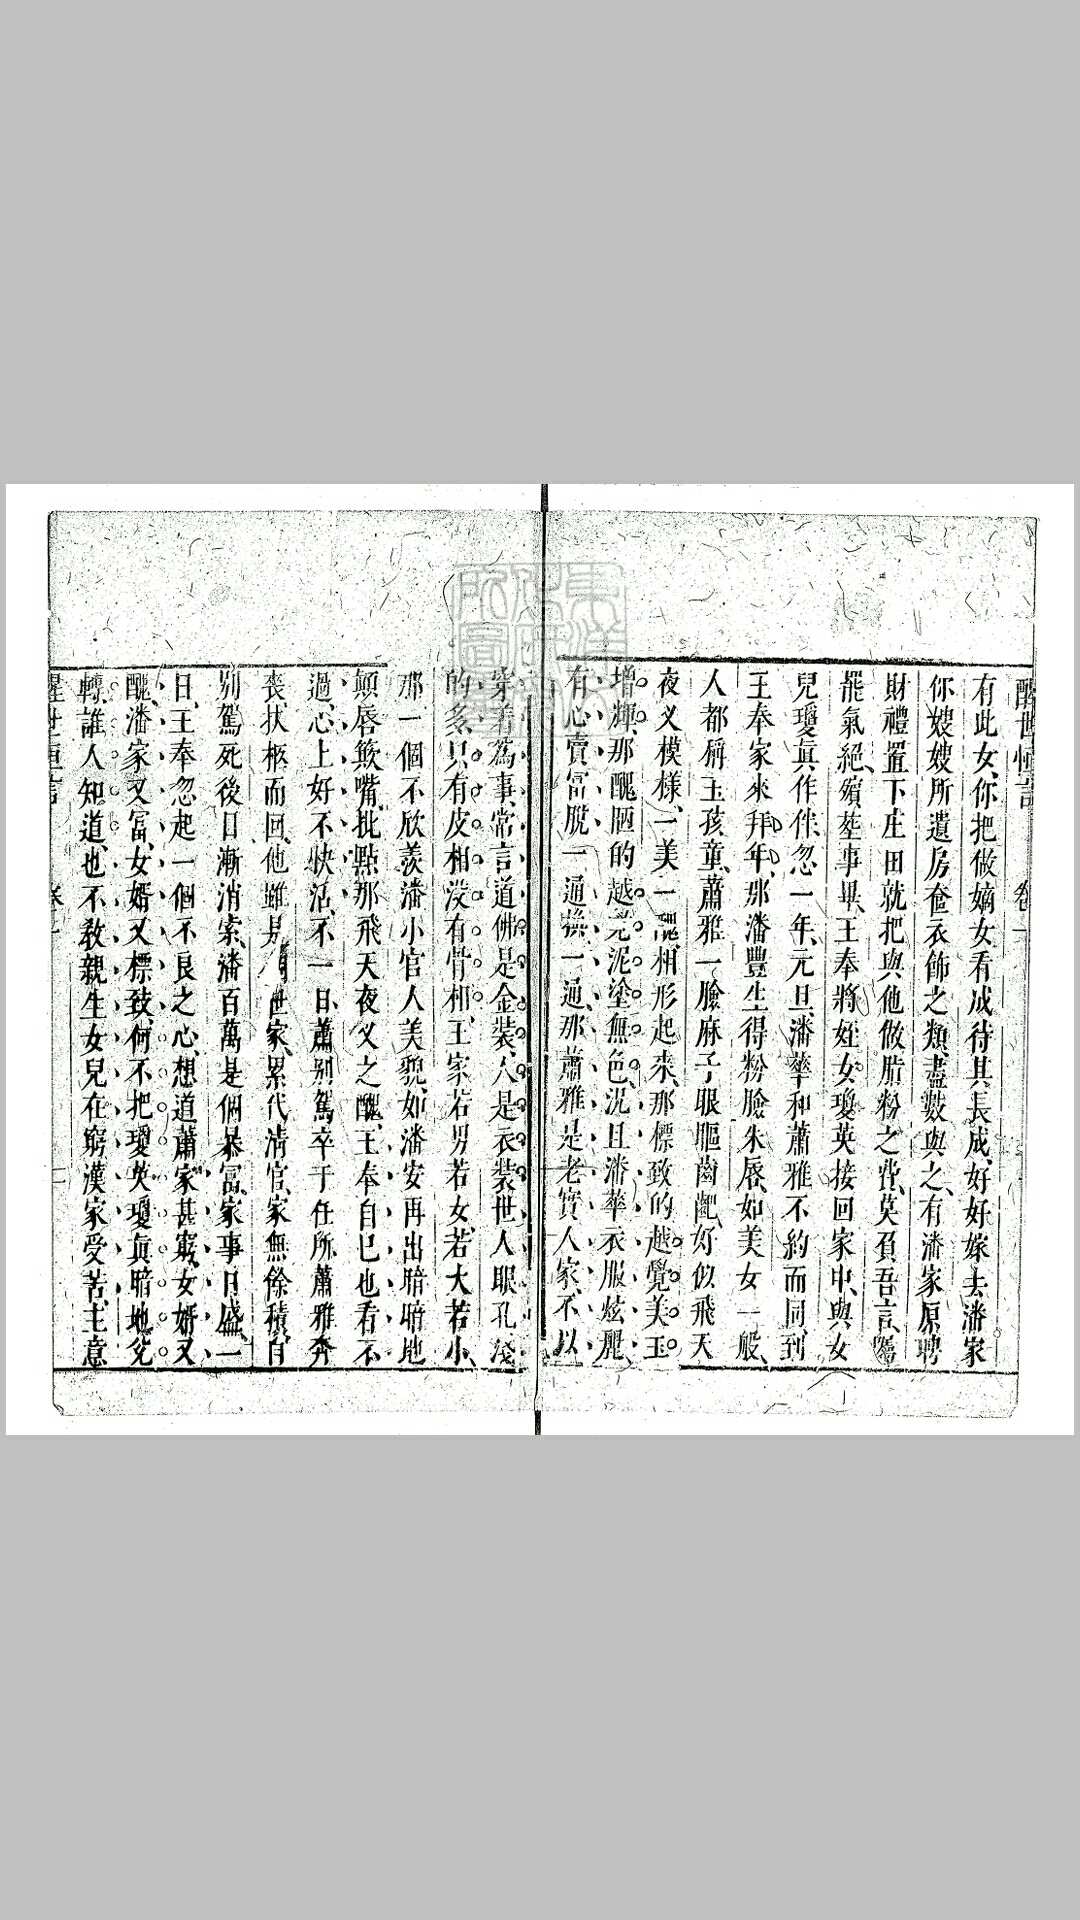 醒世恒言 卷一
有此女、你把做嫡女看成、待其長成、好好嫁去潘家
你嫂嫂所遺房奩衣飾之類、盡數與之、有潘家原聘
財禮置下庄田就把與他做脂粉之費、莫負吾言、囑
罷氣絕、殯塟事畢、王奉將姪女瓊英接回家中、與女
兒瓊眞作伴、忽一年、元旦、潘華和蕭雅不約而同到
王奉家來拜年、那潘豐生得粉臉朱唇、如美女一般、
人都稱玉孩童、蕭雅一臉麻子眼䁱齒䶕、好似飛天
夜乂模樣、一美一醜、相形起來、那標致的越覺美玉
增輝、那醜陋的越覺泥塗無色、況且潘華衣服炫麗、
有心賣富脫一通換一通、那蕭雅是老實人家、不以
穿着爲事、常言道佛是金裝、人是衣裝、世人眼孔淺
的多、只有皮相没有骨相、王家若男若女、若大若小、
那一個不欣羨潘小官人美貌、如潘安再出、暗暗地
顛唇簸嘴、批點那飛天夜乂之醜、王奉自已也看不
過、心上好不快活、不一日、蕭别駕卒于任所、蕭雅奔
喪、扶柩而回、他雖是個世家、累代清官、家無餘積、自
别駕死後、日漸消索、潘百萬是個暴富、家事日盛一
日、王奉忽起一個不良之心、想道蕭家甚窮、女婿又
醜、潘家又富、女婿又標致、何不把瓊英瓊眞暗地兌
轉、誰人知道、也不敎親生女兒在窮漢家受苦、主意
醒世恒言 卷一